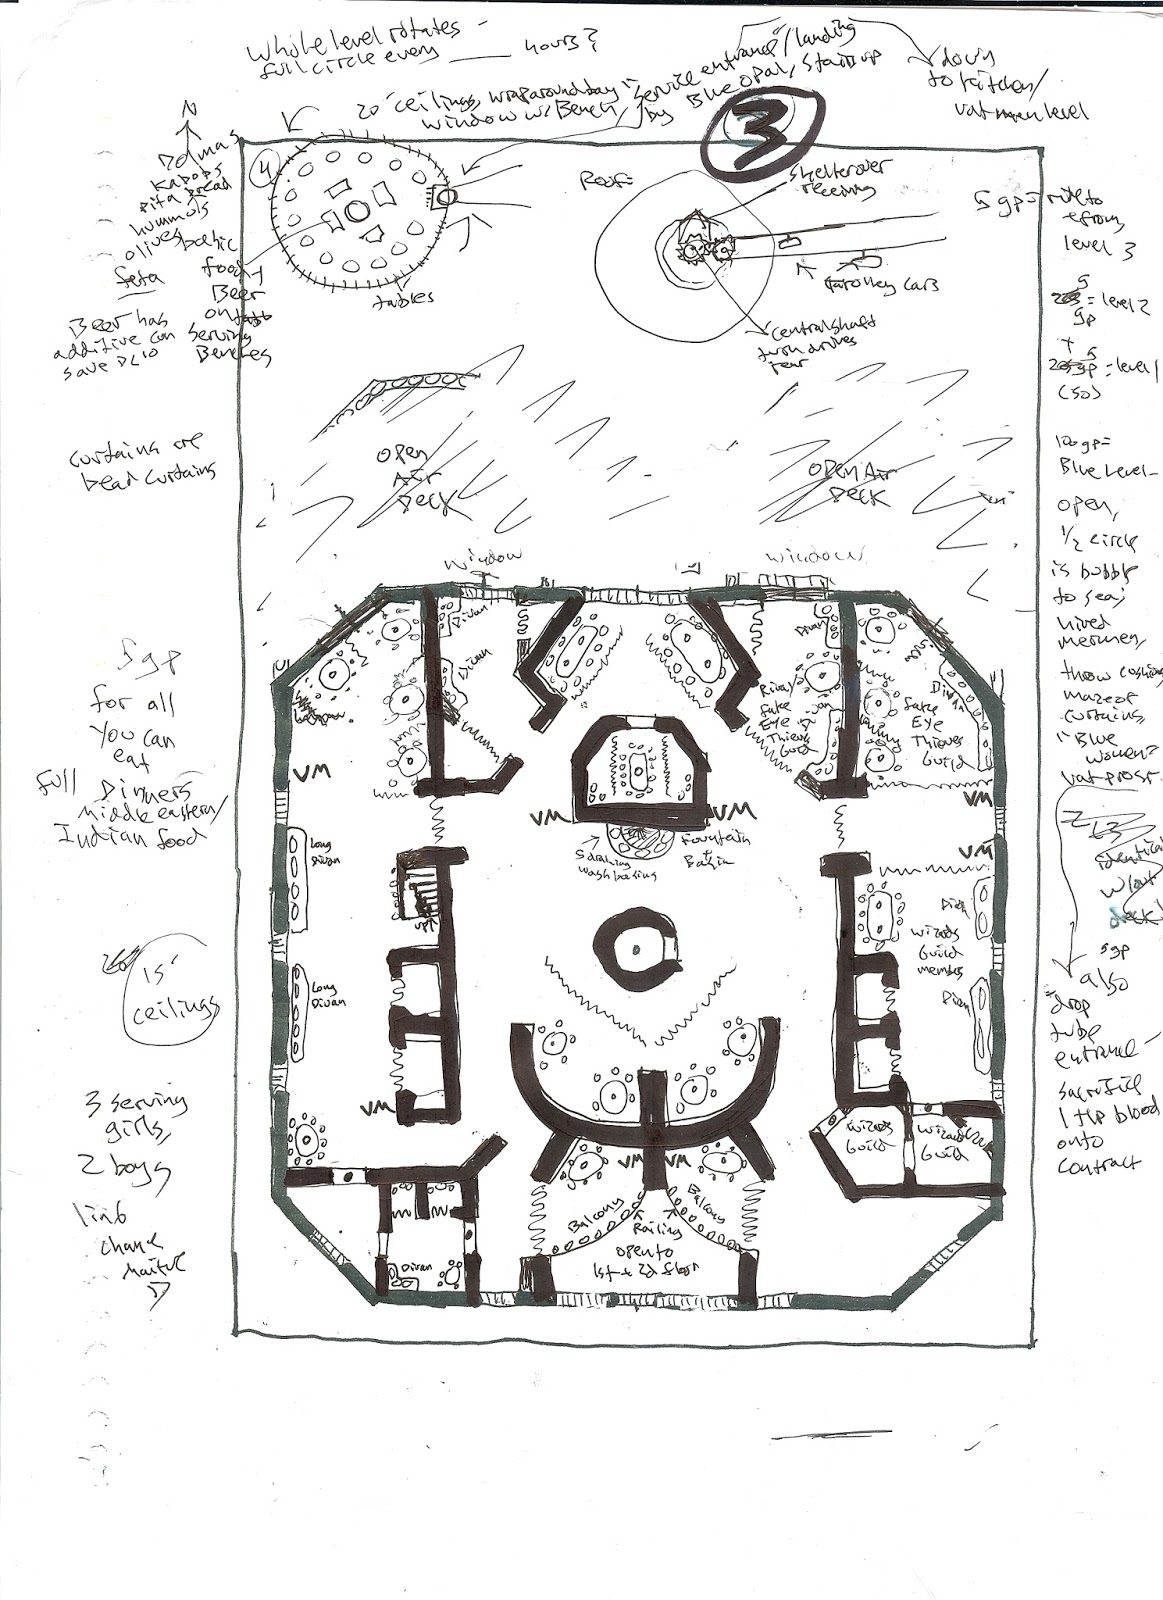 Whole level rotates -
full circle every ____ hours?
20' ceilings, wraparound bay
window w/ Bench
"Service entrance"/landing
by Blue Opal, Stairs up
down
to kitchen/
level
3
N
Dolmas
Kabobs
pita bread
hummols
olives
feta
food
Beer
on
Serving
Benches
Beer has
additive con
save DC10
4
tables
Roof:
Shelter over
receiving
trolley cars
central shaft
turn drives
5 gp = ride to
& from
level 3
5
= level 2
gp
+
5
gp = level 1
(50)
curtains are
bead curtains
Open
Air
Deck
Open Air
Deck
100 gp =
Blue Level -
open,
1/2 circle
is bubble
to sea;
hired
mermen,
throw cushions
maze of
curtains,
"Blue
women"
vat prost.
identical
w/out
deck
5gp
also
drop
tube
entrance -
sacrifice
1 HP blood
onto
contract
Window
Window
Divan
Divan
Divan
Rival
fake
Eye
Thieves
Guild
Divan
fake
Eye
Thieves
Guild
5gp
for all
you can
eat
full Dinners
Middle eastern/
Indian food
VM
VM
VM
VM
VM
Long
Divan
washbasins
Fountain
+
Basin
up
Divan
Wizards
Guild
members
Divan
Long
Divan
15'
ceilings
VM
3 serving
girls,
2 boys
1 in 6
chance
Wizards
Guild
Wizards
Guild
VM VM
Balcony
Balcony
Railing
open to
1st + 2d floor
Divan